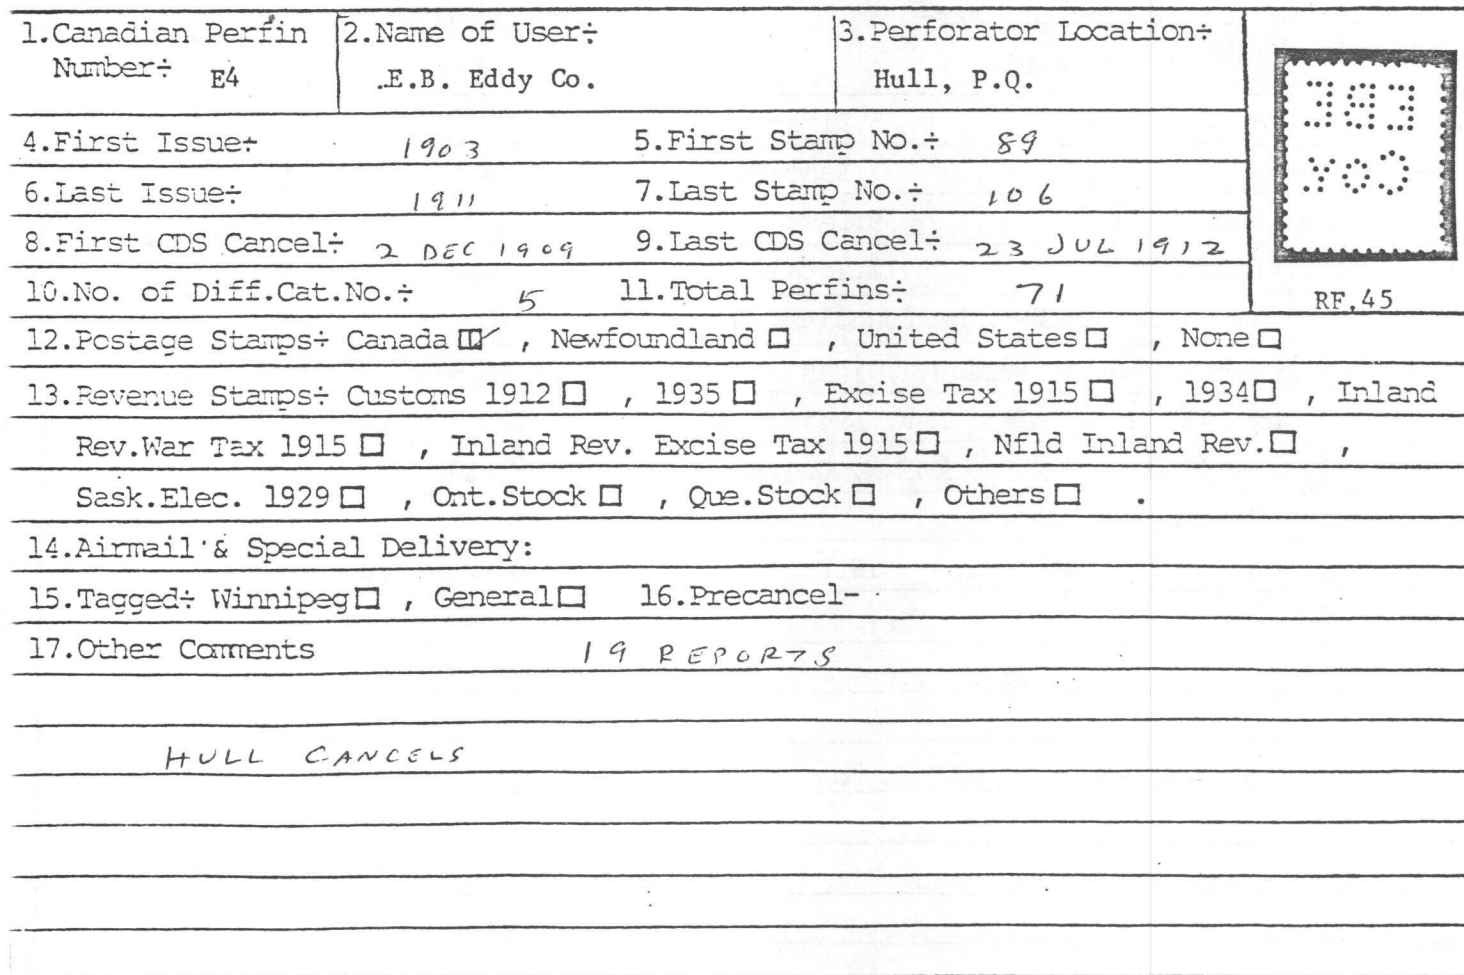 1.Canadian Perfin Number÷ E4
2.Name of User÷ .E.B. Eddy Co.
3.Perforator Location÷ Hull, P.Q.
EBE
CoY
RF.45
4.First Issue÷ 1903 5.First Stamp No.÷ 89
6.Last Issue÷ 1911 7.Last Stamp No.÷ 106
8.First CDS Cancel÷ 2 DEC 1909 9.Last CDS Cancel÷ 23 JUL 1912
10.No. of Diff.Cat.No.÷ 5 11.Total Perfins÷ 71
12.Postage Stamps÷ Canada ☑ , Newfoundland ☐ , United States ☐ , None ☐
13.Revenue Stamps÷ Customs 1912 ☐ , 1935 ☐ , Excise Tax 1915 ☐ , 1934 ☐ , Inland
Rev.War Tax 1915 ☐ , Inland Rev. Excise Tax 1915 ☐ , Nfld Inland Rev. ☐ ,
Sask.Elec. 1929 ☐ , Ont.Stock ☐ , Que.Stock ☐ , Others ☐ .
14.Airmail & Special Delivery:
15.Tagged÷ Winnipeg ☐ , General ☐ 16.Precancel-
17.Other Comments 19 REPORTS
HULL CANCELS